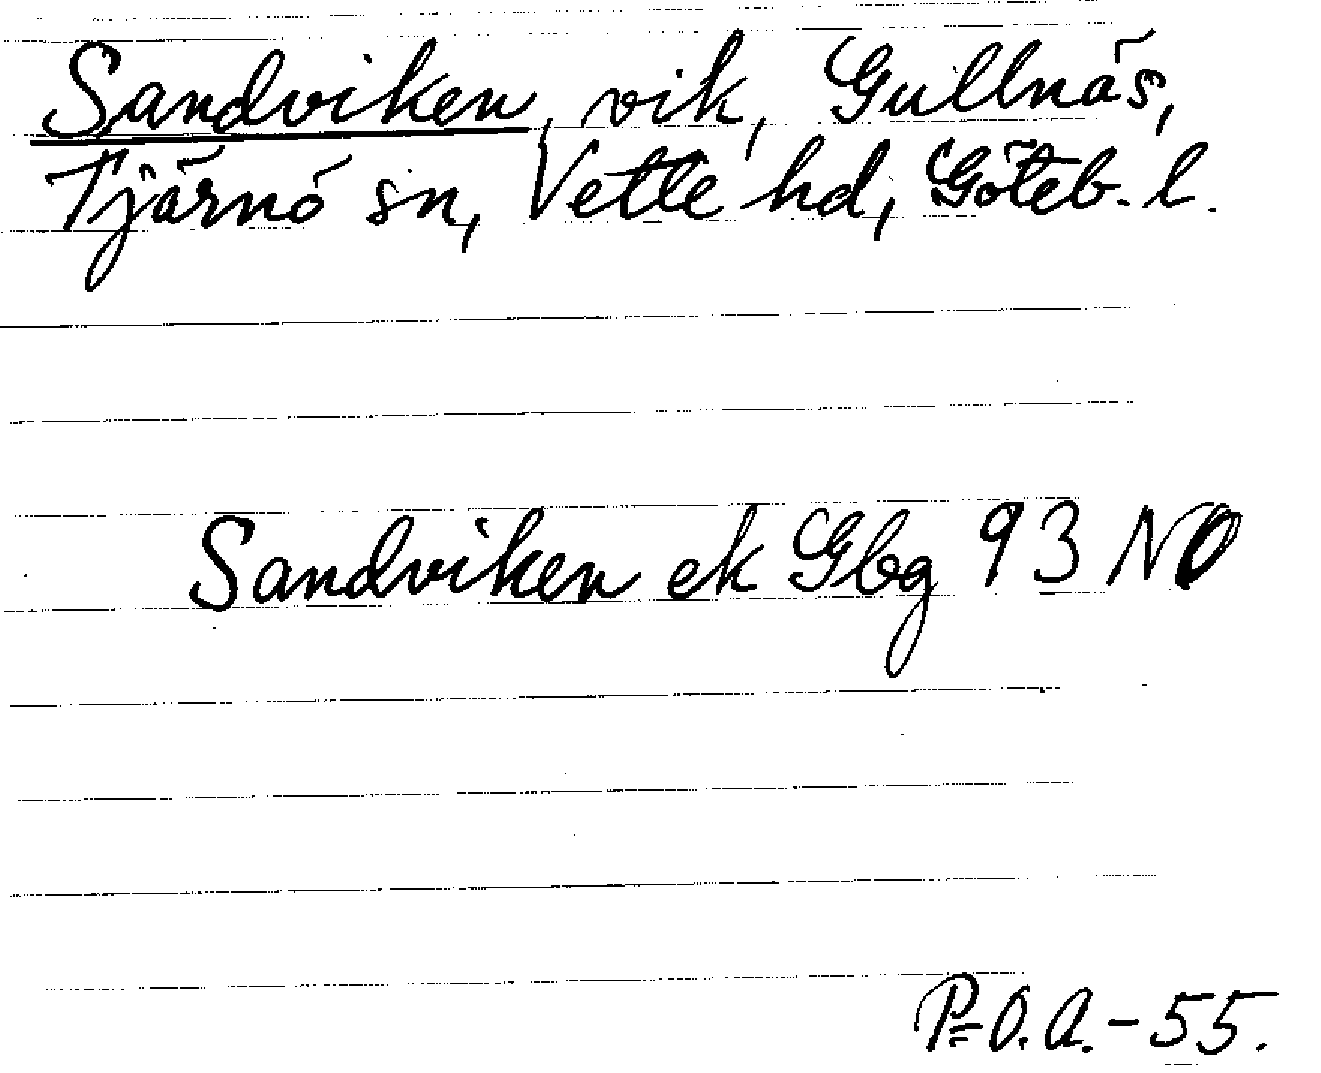 Sandviken, vik, Gullnäs,
Tjärnö sn, Vette hd, Göteb. l.
Sandviken ek Gbg 93 NO
P=O.A.-55.